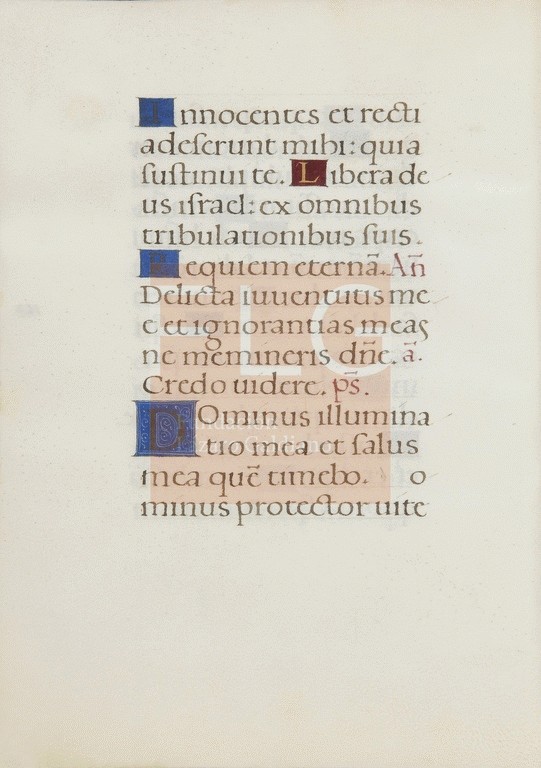 Innocentes et recti
adeserunt mihi: quia
sustinui te. Libera de
us israel: ex omnibus
tribulationibus suis.
Requiem eternā. An̄
Delicta iuuentutis me
e et ignorantias meas
ne memineris dn̄e. ā.
Credo uidere. ps̄.
Dominus illumina
tio mea et salus
mea quē timebo. o
minus protector uite
FLG
Fundación
Lázaro Galdiano